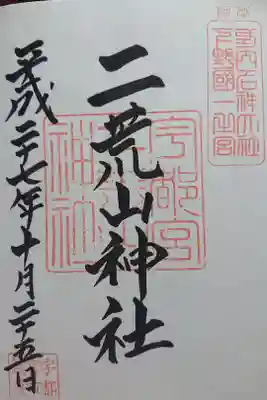 式内名神大社
下野國一之宮
二荒山神社
宇都宮
神社
平成二十七年十月二十五日